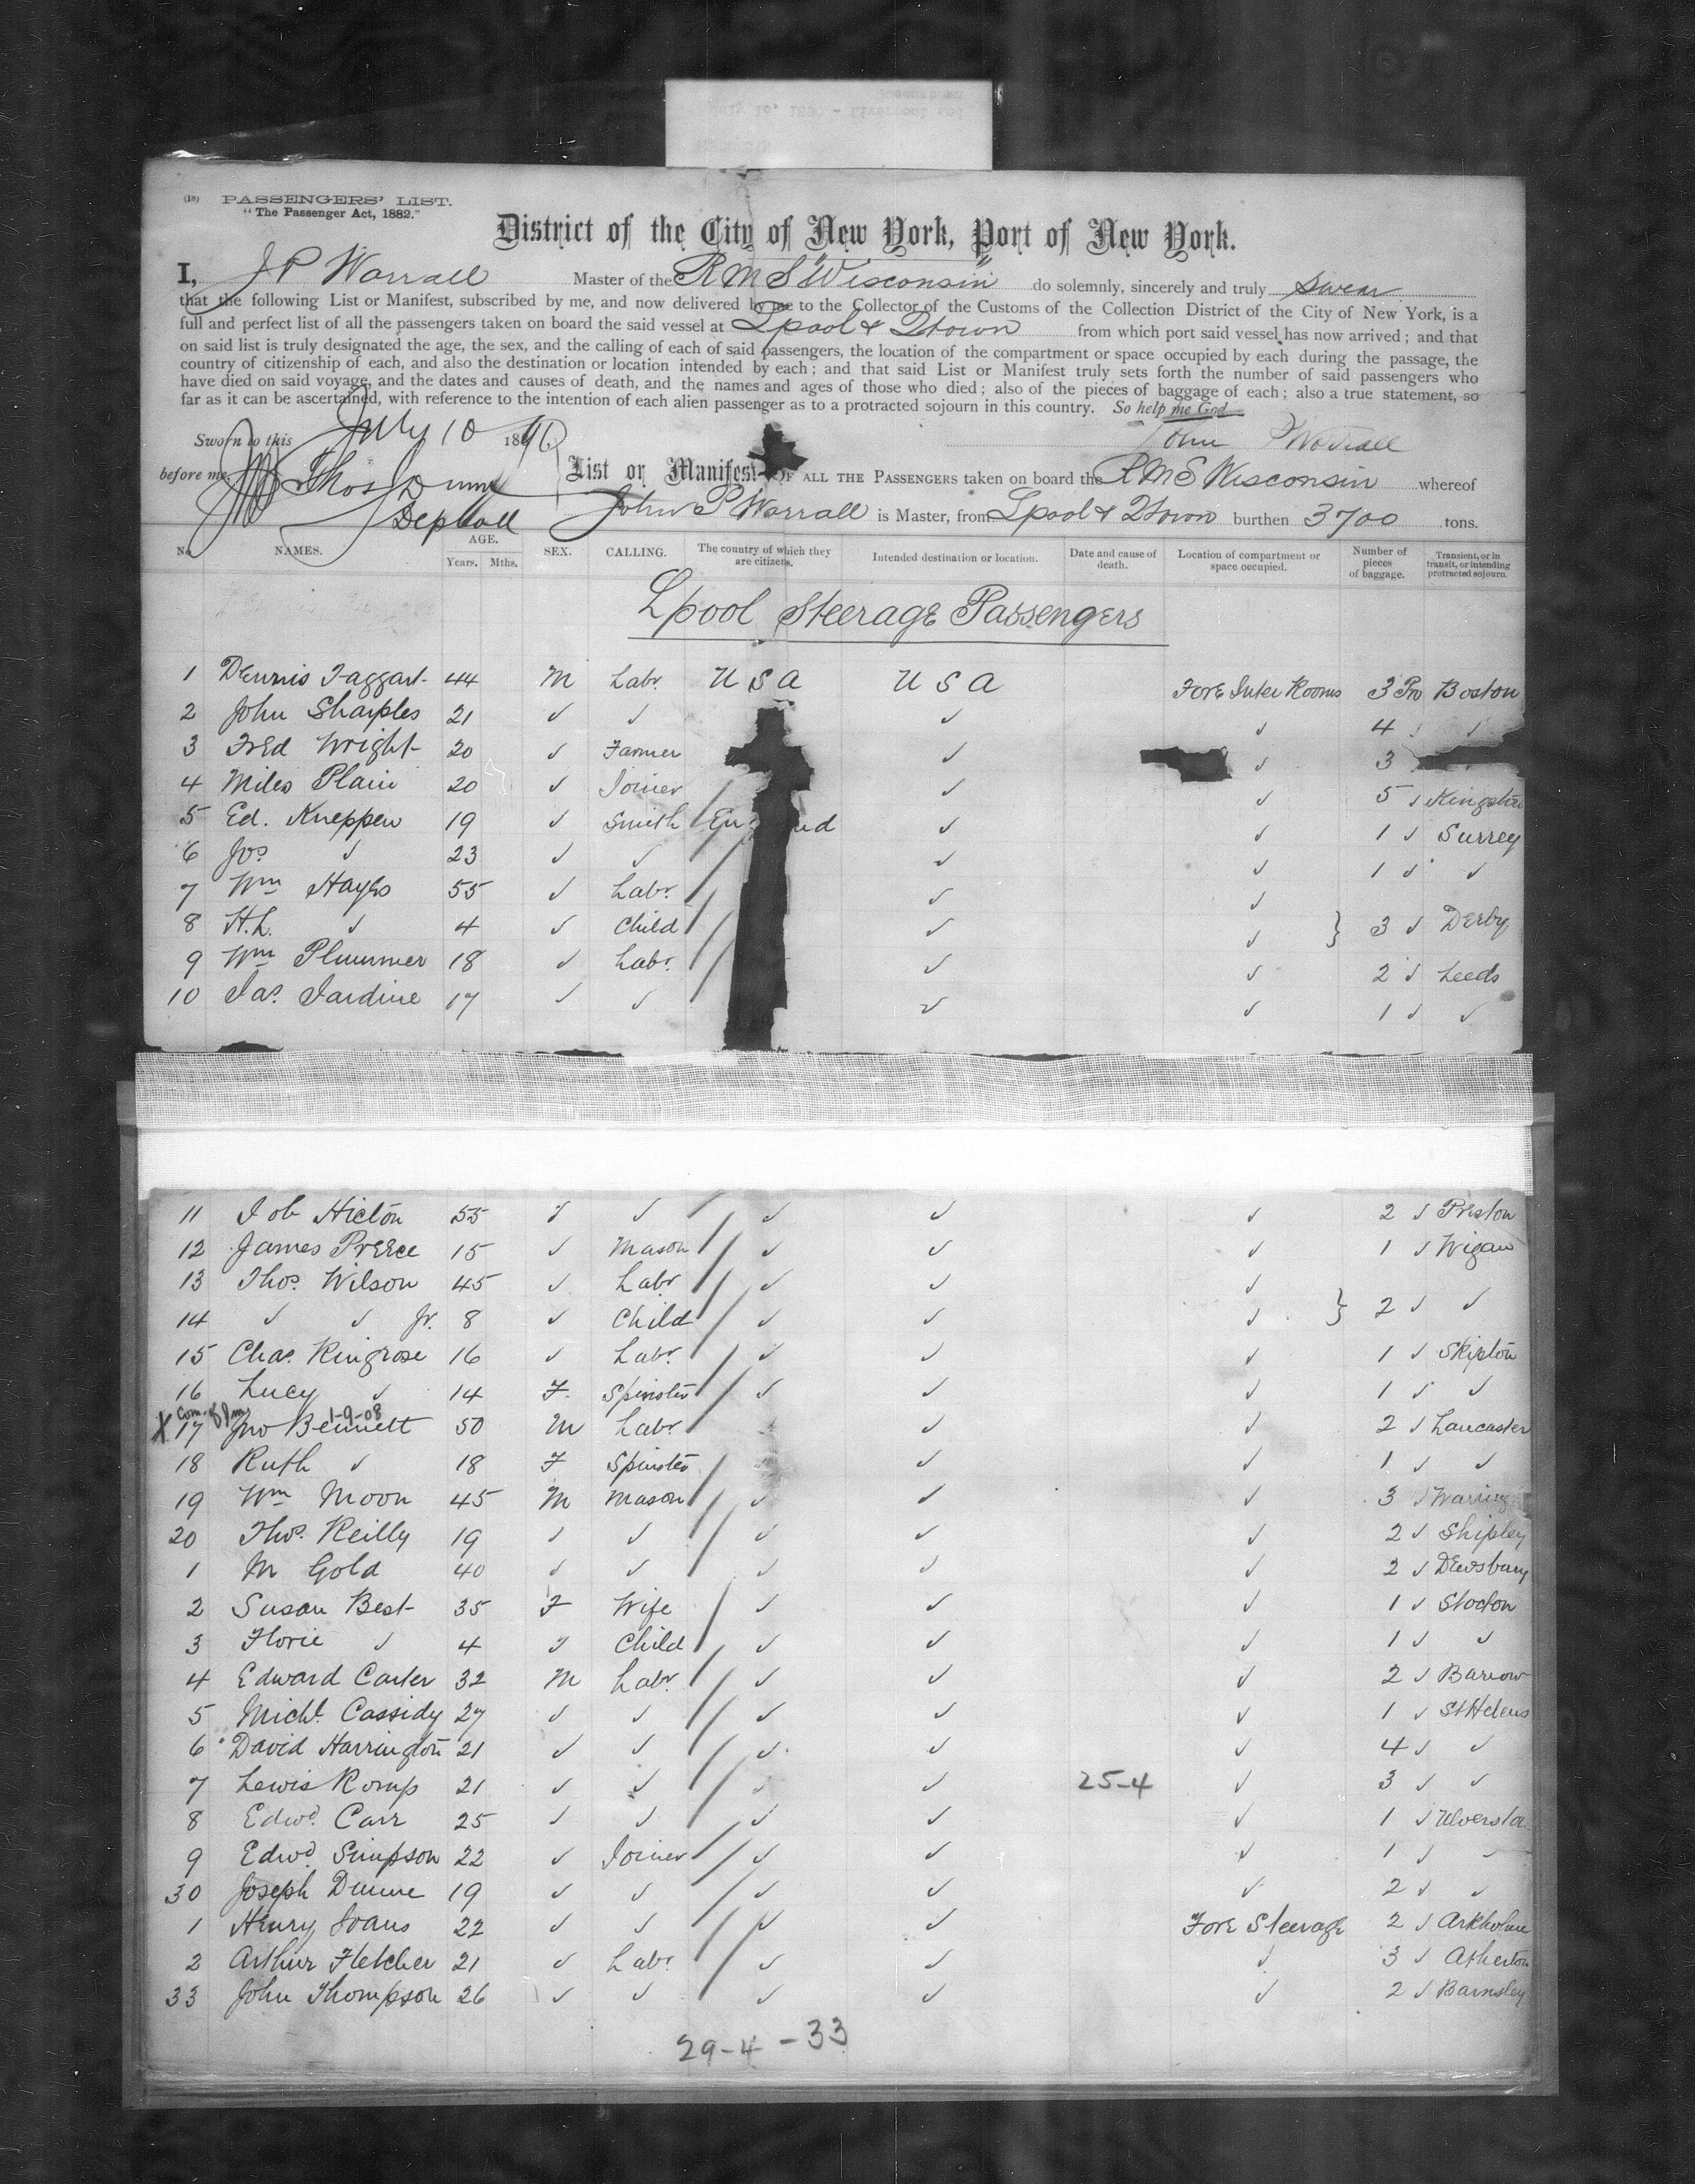 (18) PASSENGERS' LIST.
"The Passenger Act, 1882."
District of the City of New York, Port of New York.
I, J P Worrall Master of the R M S "Wisconsin" do solemnly, sincerely and truly swear
that the following List or Manifest, subscribed by me, and now delivered by me to the Collector of the Customs of the Collection District of the City of New York, is a
full and perfect list of all the passengers taken on board the said vessel at Lpool & Qtown from which port said vessel has now arrived; and that
on said list is truly designated the age, the sex, and the calling of each of said passengers, the location of the compartment or space occupied by each during the passage, the
country of citizenship of each, and also the destination or location intended by each; and that said List or Manifest truly sets forth the number of said passengers who
have died on said voyage, and the dates and causes of death, and the names and ages of those who died; also of the pieces of baggage of each; also a true statement, so
far as it can be ascertained, with reference to the intention of each alien passenger as to a protracted sojourn in this country. So help me God
Sworn to this July 10 18 John P Worrall
before me Thos J Dunn List or Manifest OF ALL THE PASSENGERS taken on board the R M S Wisconsin whereof
Dep Coll John P Worrall is Master, from Lpool & Qtown burthen 3700 tons.
No NAMES. AGE. Years. Mths. SEX. CALLING. The country of which they are citizens. Intended destination or location. Date and cause of death. Location of compartment or space occupied. Number of pieces of baggage. Transient, or in transit, or intending protracted sojourn.
Lpool Steerage Passengers
1 Dennis Taggart 44 M Labr. U S A U S A Fore Inter Rooms 3 Pro Boston
2 John Sharples 21 ✓ ✓ ✓ ✓ 4 ✓ ✓
3 Fred Wright 20 ✓ Farmer ✓ ✓ 3
4 Miles Plain 20 ✓ Joiner ✓ ✓ 5 ✓ Kingston
5 Ed. Kneppew 19 ✓ Smith En nd ✓ ✓ 1 ✓ Surrey
6 Jos ✓ 23 ✓ ✓ ✓ ✓ 1 ✓ ✓
7 Wm Hayes 55 ✓ Labr. ✓ ✓
8 H.L. ✓ 4 ✓ Child ✓ ✓ } 3 ✓ Derby
9 Wm Plummer 18 ✓ Labr. ✓ ✓ 2 ✓ Leeds
10 Jas. Jardine 17 ✓ ✓ ✓ ✓ 1 ✓ ✓
11 Job Hicton 55 ✓ ✓ ✓ ✓ ✓ 2 ✓ Preston
12 James Preece 15 ✓ Mason ✓ ✓ ✓ 1 ✓ Wigan
13 Thos. Wilson 45 ✓ Labr ✓ ✓ ✓
14 ✓ ✓ Jr. 8 ✓ Child ✓ ✓ ✓ } 2 ✓ ✓
15 Chas. Ringrose 16 ✓ Labr. ✓ ✓ ✓ 1 ✓ Skipton
16 Lucy ✓ 14 F. Spinster ✓ ✓ ✓ 1 ✓ ✓
1-9-08
X 17 Jno Bennett 50 M Labr ✓ ✓ 2 ✓ Lancaster
18 Ruth ✓ 18 F Spinster ✓ ✓ 1 ✓ ✓
19 Wm Moon 45 M Mason ✓ ✓ ✓ 3 ✓ Warring
20 Thos. Reilly 19 ✓ ✓ ✓ ✓ ✓ 2 ✓ Shipley
1 M Gold 40 ✓ ✓ ✓ ✓ ✓ 2 ✓ Dewsbury
2 Susan Best 35 F Wife ✓ ✓ ✓ 1 ✓ Stocton
3 Florie ✓ 4 ✓ Child ✓ ✓ ✓ 1 ✓ ✓
4 Edward Carter 32 M Labr. ✓ ✓ ✓ 2 ✓ Barrow
5 Michl. Cassidy 27 ✓ ✓ ✓ ✓ ✓ 1 ✓ St Helens
6 David Harrington 21 ✓ ✓ ✓ ✓ ✓ 4 ✓ ✓
7 Lewis Romp 21 ✓ ✓ ✓ ✓ 25-4 ✓ 3 ✓ ✓
8 Edwd. Carr 25 ✓ ✓ ✓ ✓ ✓ 1 ✓ Ulversto
9 Edwd. Simpson 22 ✓ Joiner ✓ ✓ ✓ 1 ✓ ✓
30 Joseph Dunne 19 ✓ ✓ ✓ ✓ ✓ 2 ✓ ✓
1 Henry Joans 22 ✓ ✓ ✓ ✓ Fore Steerage 2 ✓ Arkholme
2 Arthur Fletcher 21 ✓ Labr. ✓ ✓ ✓ 3 ✓ Atherton
33 John Thompson 26 ✓ ✓ ✓ ✓ ✓ 2 ✓ Barnsley
29-4-33